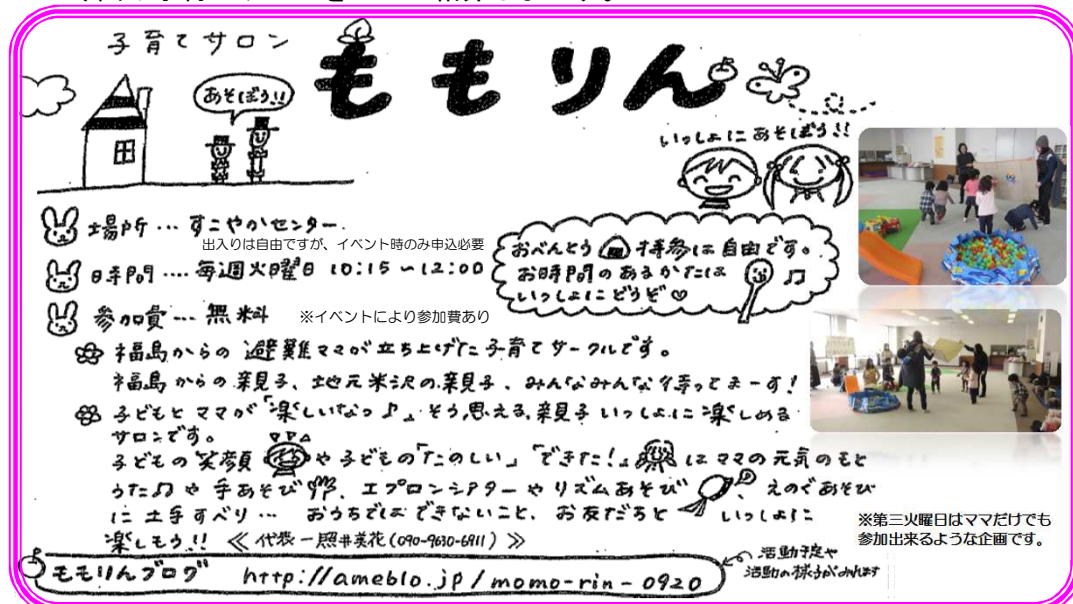 子育てサロン
ももりん
あそぼう!!
いっしょにあそぼう!!
場所… すこやかセンター.
出入りは自由ですが、イベント時のみ申込必要
日時間‥‥ 毎週火曜日 10:15~12:00
おべんとう 持参は自由です。
お時間のあるかたは
いっしょにどうぞ♡
参加費… 無料
※イベントにより参加費あり
福島からの避難ママが立ち上げた子育てサークルです。
福島からの親子、地元米沢の親子、みんなみんな待ってまーす!
子どもとママが「楽しいなっ♪」そう思える、親子いっしょに楽しめる
サロンです。
子どもの笑顔 や子どもの「たのしい」「できた!」 はママの元気のもと
うた♫や手あそび 、エプロンシアターやリズムあそび 、えのぐあそび
に土手すべり… おうちではできないこと、お友だちと いっしょに
楽しもう!! ≪代表-照井美花(090-9630-6911)≫
※第三火曜日はママだけでも
参加出来るような企画です。
ももりんブログ http://ameblo.jp/momo-rin-0920
活動予定や
活動の様子がみれます